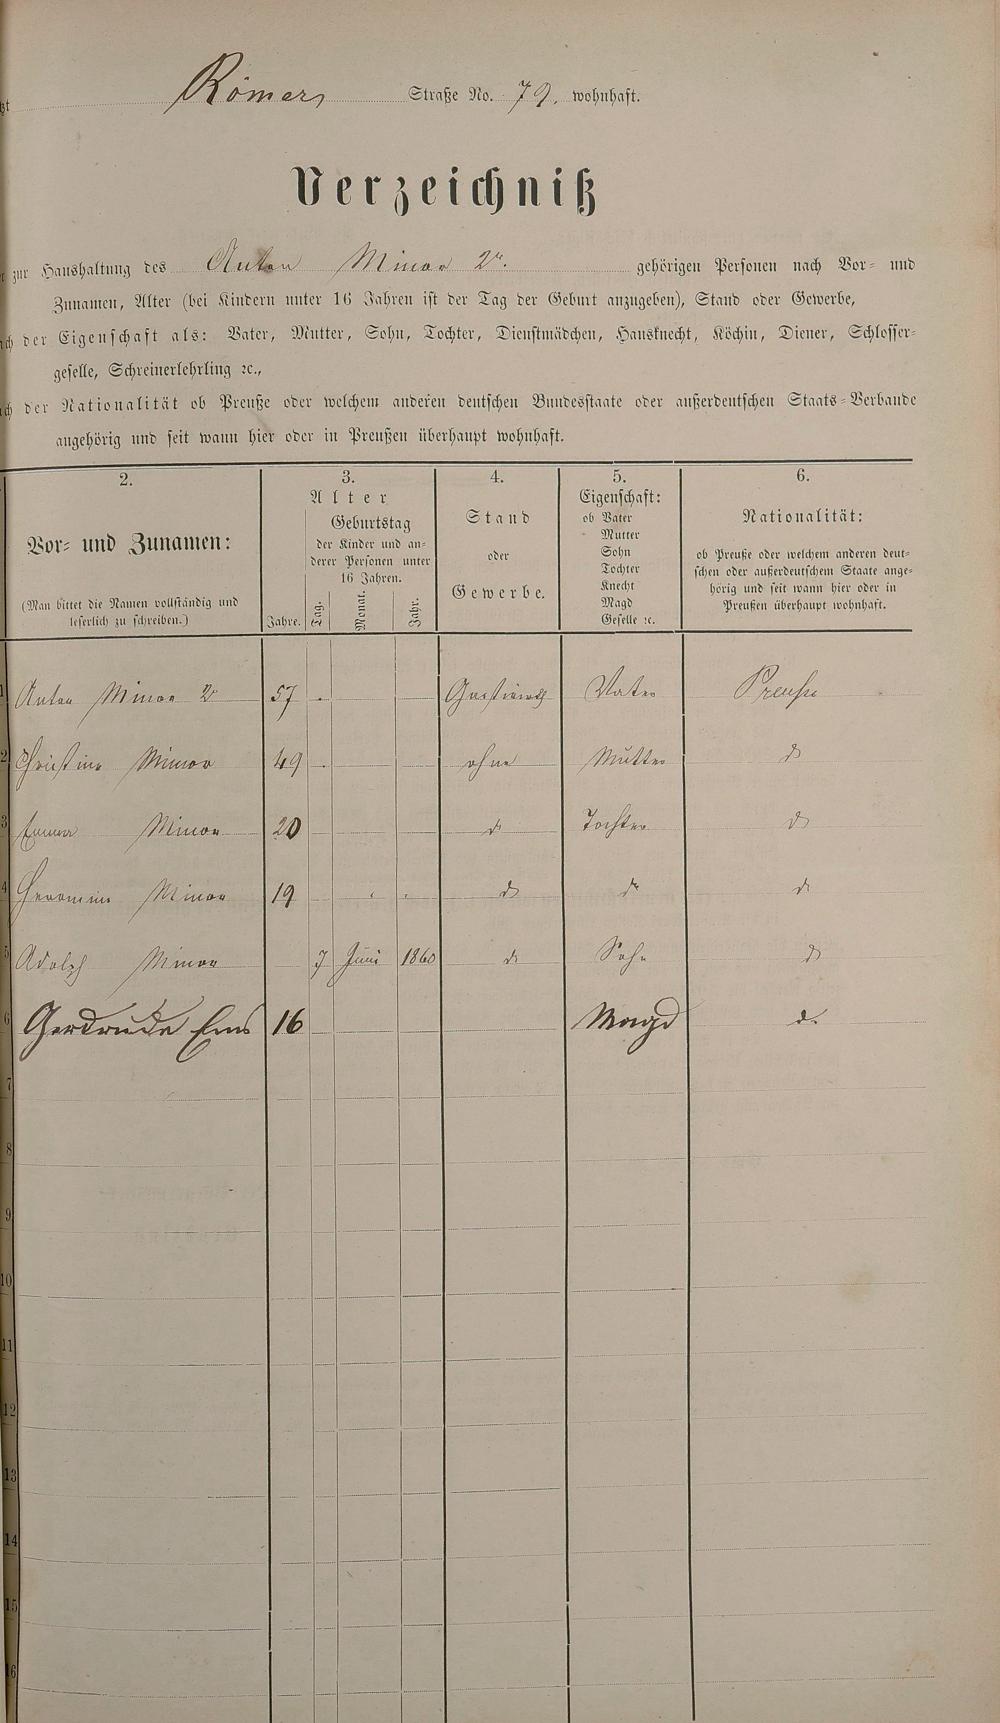 Römer Straße No. 79. wohnhaft.
Verzeichniß
zur Haushaltung des Anton Minor 2r. gehörigen Personen nach Vor- und
Zunamen, Alter (bei Kindern unter 16 Jahren ist der Tag der Geburt anzugeben), Stand oder Gewerbe,
der Eigenschaft als: Vater, Mutter, Sohn, Tochter, Dienstmädchen, Hausknecht, Köchin, Diener, Schlosser-
geselle, Schreinerlehrling ꝛc.,
der Nationalität ob Preuße oder welchem anderen deutschen Bundesstaate oder außerdeutschen Staats-Verbande
angehörig und seit wann hier oder in Preußen überhaupt wohnhaft.
2.
Vor- und Zunamen:
(Man bittet die Namen vollständig und
leserlich zu schreiben.)
3.
Alter
Geburtstag
der Kinder und an-
derer Personen unter
16 Jahren.
Jahre. Tag. Monat. Jahr.
4.
Stand
oder
Gewerbe.
5.
Eigenschaft:
ob Vater
Mutter
Sohn
Tochter
Knecht
Magd
Geselle ꝛc.
6.
Nationalität:
ob Preuße oder welchem anderen deut-
schen oder außerdeutschem Staate ange-
hörig und seit wann hier oder in
Preußen überhaupt wohnhaft.
1 Anton Minor 2r 57 Gastwirth Vater Preuße
2 Christine Minor 49 ohne Mutter do
3 Emma Minor 20 do Tochter do
4 Minor 19 do do do
5 Adolph Minor 7 Juni 1860 do Sohn do
6 Gertrude Ems 16 Magd do
7
8
9
10
11
12
13
14
15
16